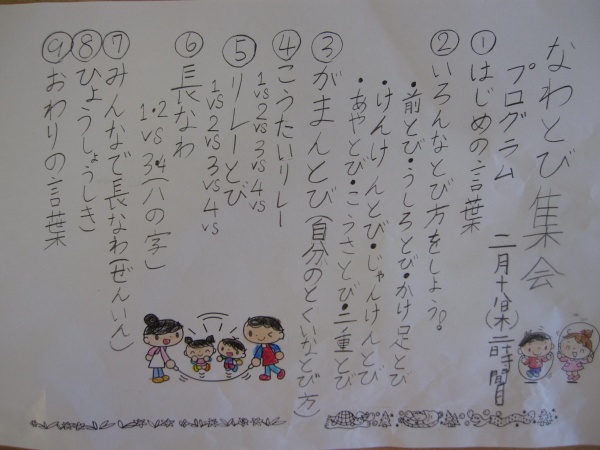 なわとび集会
プログラム
二月十八日(木)二時間目
①はじめの言葉
②いろんなとび方をしよう。
・前とび・うしろとび・かけ足とび
・けんけんとび・じゃんけんとび
・あやとび・こうさとび・二重とび
③がまんとび(自分のとくいなとび方)
④こうたいリレー
1vs2vs3vs4vs
⑤リレーとび
1vs2vs3vs4vs
⑥長なわ
1・2vs3・4(八の字)
⑦みんなで長なわ(ぜんいん)
⑧ひょうしょうしき
⑨おわりの言葉